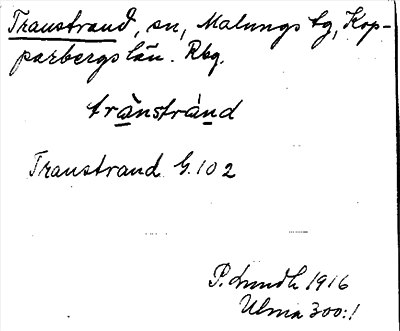 Transtrand, sn, Malungs tg, Kop-
parbergs län. Rbg.
trànstrànd
Transtrand G. 102
P. Lundh 1916
Ulma 300:1